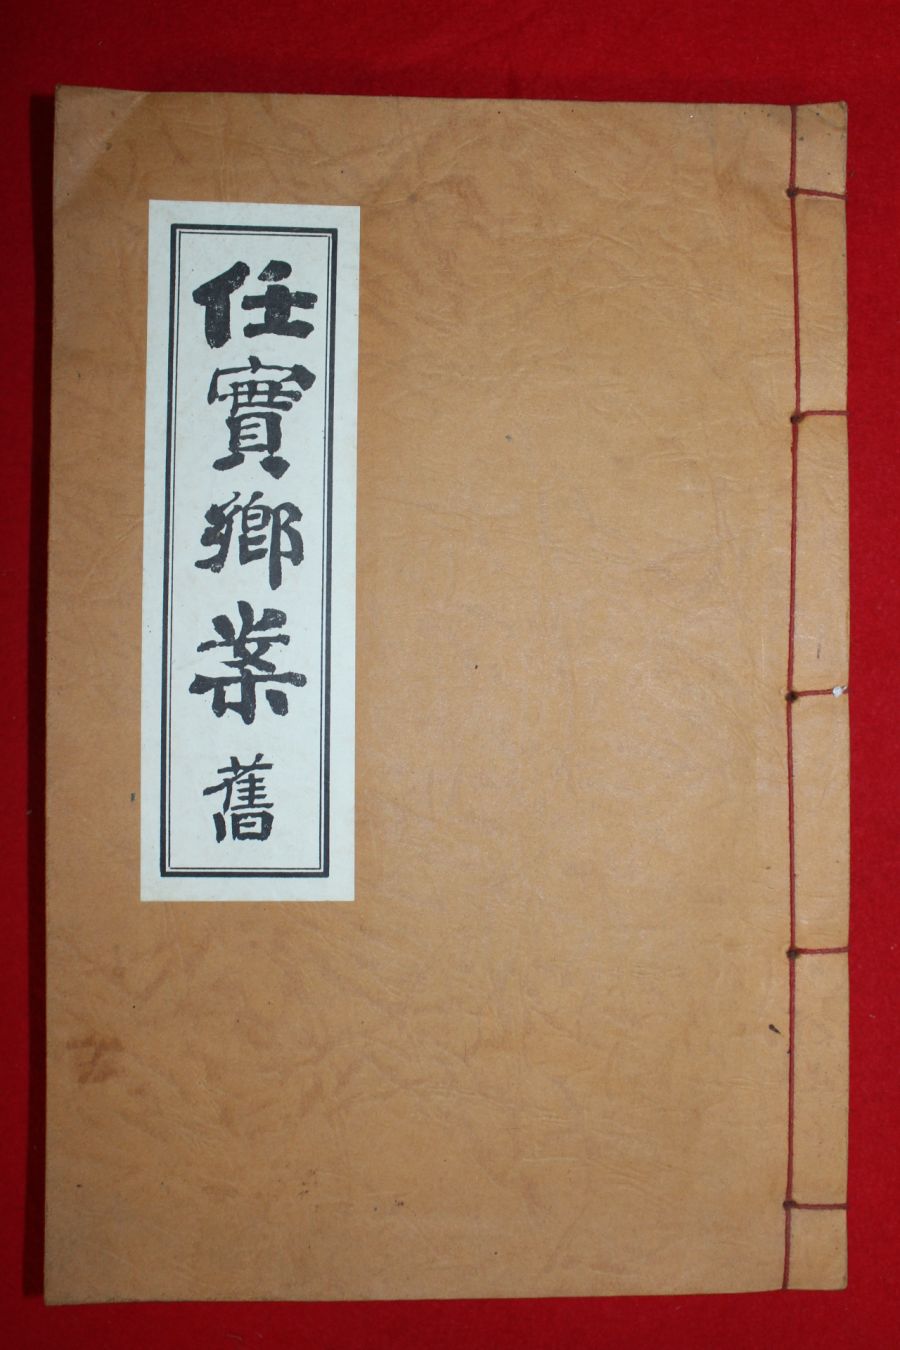 任實鄕案 舊